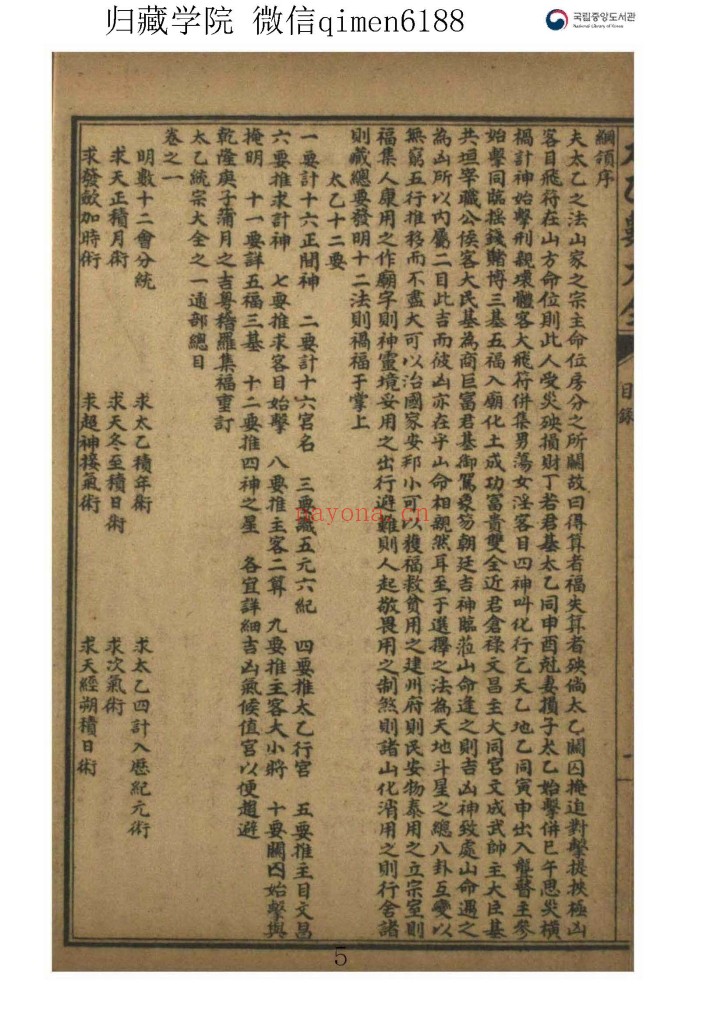 归藏学院 微信qimen6188
국립중앙도서관
National Library of Korea
目錄
綱領序
夫太乙之法山家之宗主命位房分之所關故曰得算者福失算者殃倘太乙關囚掩迫對擊提挾極凶
客目飛符在山方命位則此人受災殃損財丁若君基太乙同申酉尅妻損子太乙始擊併巳午思災橫
禍計神始擊刑親壞體客大飛符併集男蕩女淫客目四神叫化行乞天乙地乙同寅申出入聾瞽主參
始擊同臨搖錢賭博三基五福入廟化土成功富貴雙全近君倉祿文昌主大同宮文成武帥主大臣基
共垣宰職公侯客大民基為商巨富君基御駕象笏朝廷吉神臨蒞山命逢之則吉凶神致處山命遇之
為凶所以內屬二目此吉而彼凶亦在乎山命相親然耳至于選擇之法為天地斗星之總八卦互變以
無窮五行推移而不盡大可以治國家安邦小可以獲福救貧用之建州府則民安物泰用之立宗室則
福集人康用之作廟宇則神靈境妥用之出行避難則人起敬畏用之制煞則諸山化消用之則行舍諸
則藏總要發明十二法則禍福于掌上
太乙十二要
一要計十六正間神 二要計十六宮名 三要識五元六紀 四要推太乙行宮 五要推主目文昌
六要推求計神 七要推求客目始擊 八要推主客二算 九要推主客大小將 十要關囚始擊與
掩明 十一要詳五福三基 十二要推四神之星 各宜詳細吉凶氣候值宮以便趨避
乾隆庚子蒲月之吉粵稽羅集福重訂
太乙統宗大全之一通部總目
卷之一
明數十二會分統 求太乙積年術 求太乙四計入歷紀元術
求天正積月術 求天冬至積日術 求次氣術
求發斂加時術 求超神接氣術 求天經朔積日術
nayona.cn
5